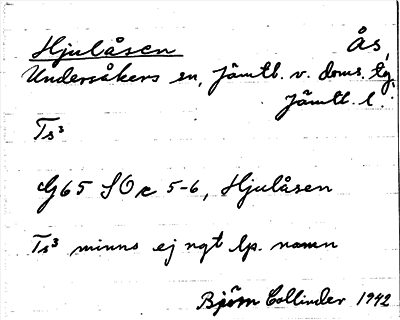 Hjulåsen Ås,
Undersåkers sn, Jämtl. v. doms. tg,
Jämtl. l.
Ts³
G65 SOc 5-6, Hjulåsen
Ts³ minns ej ngt lp. namn
Björn Collinder 1942